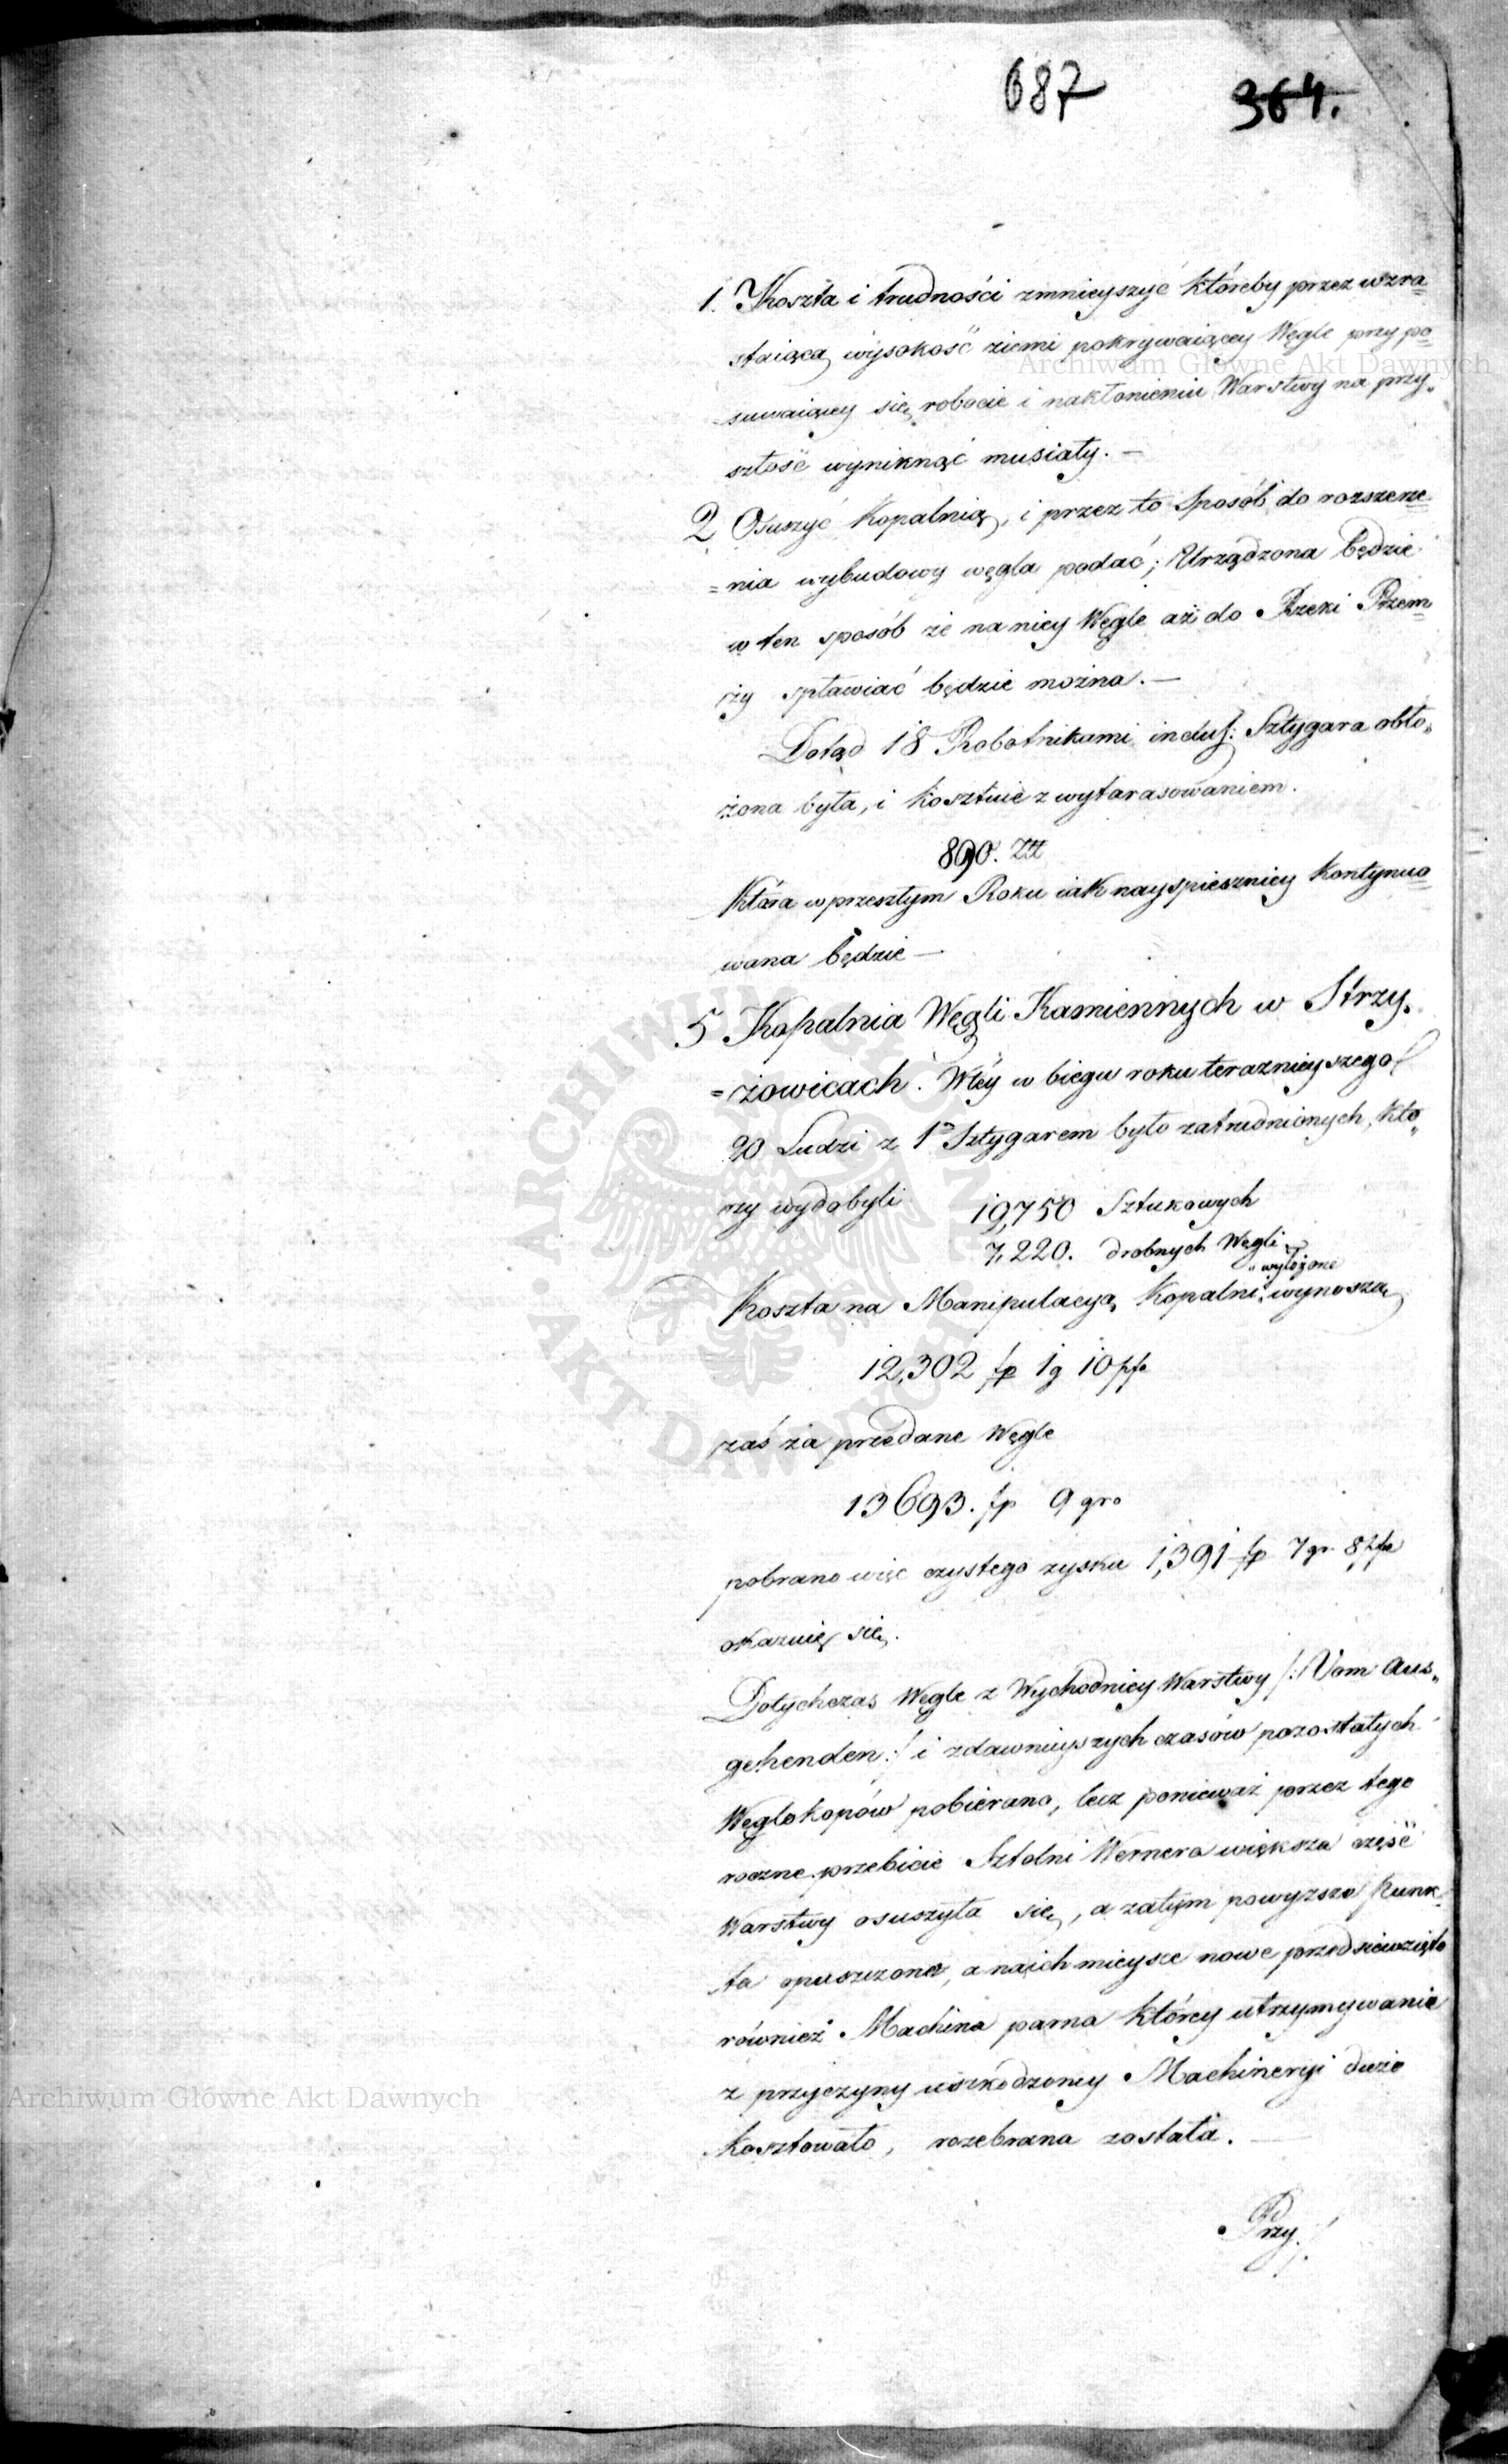 687 364.
1. Koszta i trudności zmnieyszyć któreby przez wzra=
staiącą wysokość ziemi pokrywaiącey Węgle przy po=
suwaiącey się robocie i nakłonieniu Warstwy na przy„
szłość wyniknąć musiały. —
2 Osuszyć Kopalnią, i przez to Sposób do rozszerze=
=nia wybudowy węgla podać; Urządzona będzie
w ten sposób że na niey Węgle aż do Rzeki Przem=
szy spławiać będzie można. —
Dotąd 18 Robotnikami inclus: Sztygara obło„
żona była, i kosztuie z wytarasowaniem.
890. Złł
Która w przeszłym Roku iak nayspieszniey kontynuo=
wana będzie —
5 Kopalnia Węgli Kamiennych w Strzy„
=żowicach. W tey w biegu roku teraznieyszego
20 Ludzi z 1m Sztygarem było zatrudnionych, któ„
rzy wydobyli 19,750 Sztukowych
7,220. drobnych Węgli
wyłożone
Koszta na Manipulacyą Kopalni wynoszą
12,302 fp 1 g 10 pfe
zaś za przedane Węgle
13693. fp 9 gro
pobrano więc czystego zysku 1,391 fp 7 gr 8 pfe
okazuię się.
Dotychczas Węgle z Wychodniey Warstwy /: Vom Aus„
gehenden :/ i zdawnieyszych czasów pozostałych
Węglokopów pobierano, lecz ponieważ przez tego
roczne przebicie Sztolni Wernera większa część
Warstwy osuszyła się, a zatym powyższe Punk
ta opuszczone, a na ich mieysce nowe przedsiewzięto
również Machina parna którey utrzymywanie
z przyczyny uszkodzoney Machineryi duże
kosztowało, rozebrana została. —
Przy
Archiwum Główne Akt Dawnych
Archiwum Główne Akt Dawnych
ARCHIWUM GŁÓWNE AKT DAWNYCH